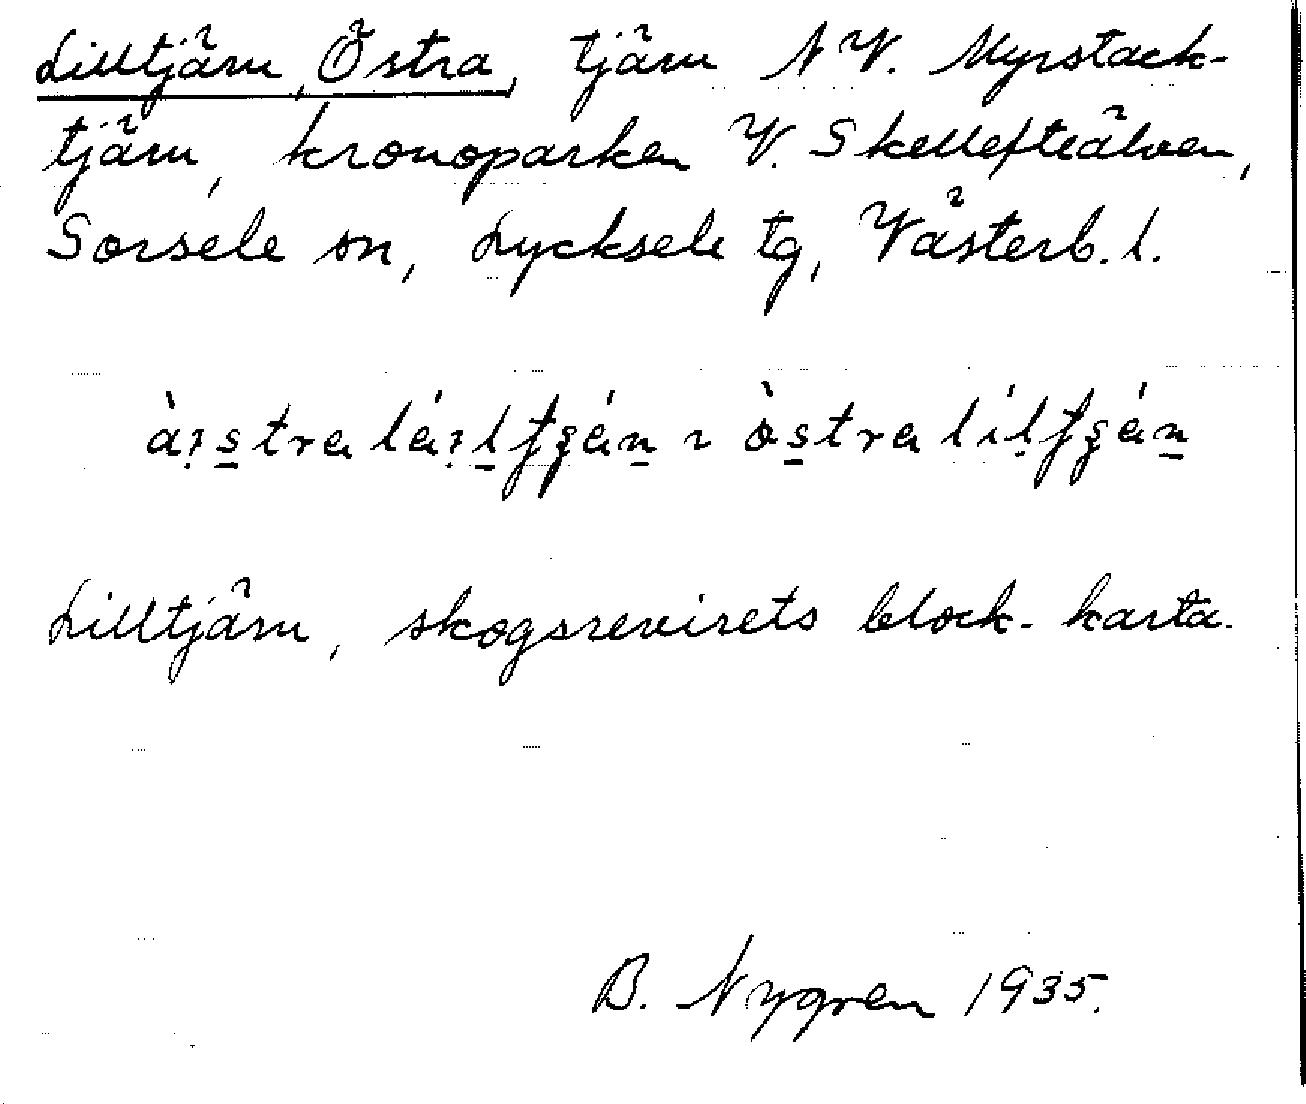 Lilltjärn, Östra, tjärn NV. Myrstack-
tjärn, kronoparken V. Skellefteälven,
Sorsele sn, Lycksele tg, Västerb. l.
Lilltjärn, skogsrevirets block-karta.
B. Nygren 1935.